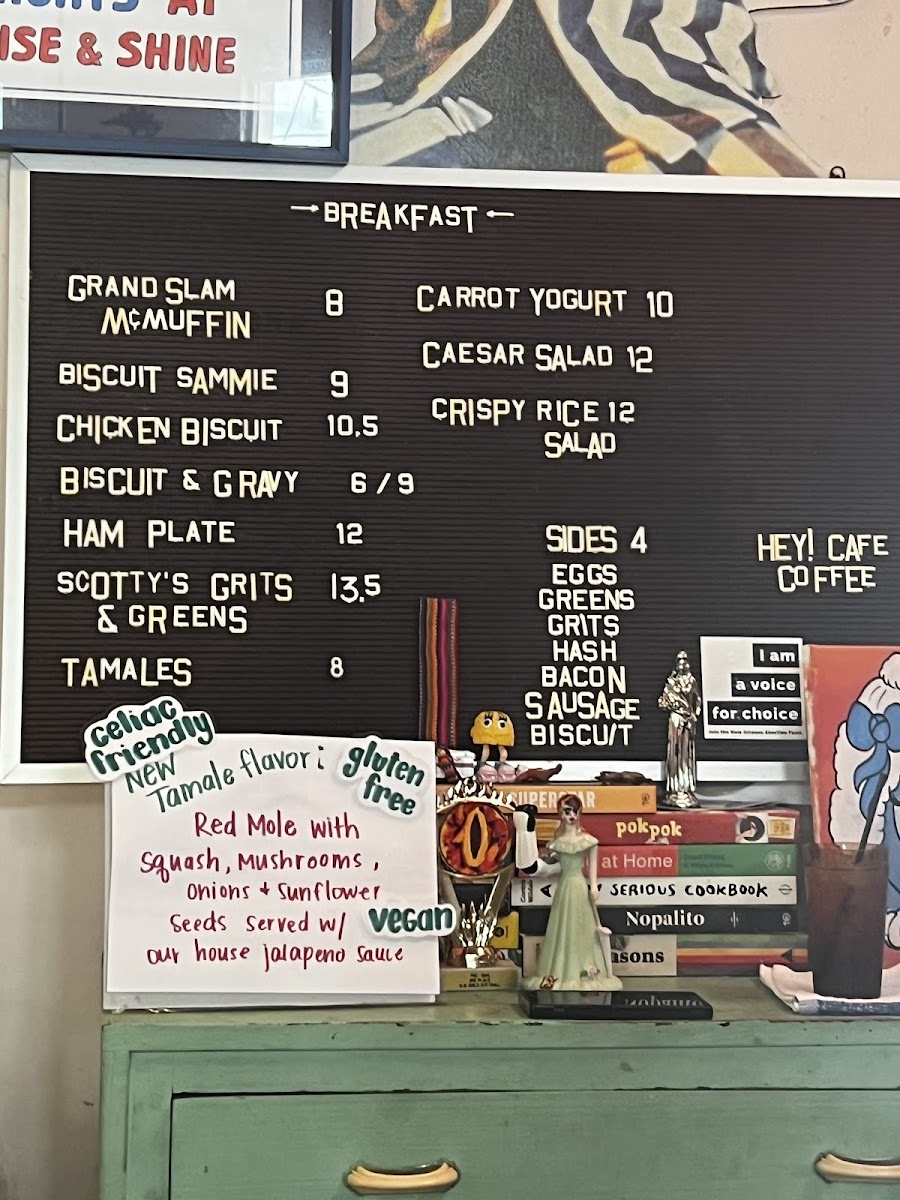 AT
ISE & SHINE
→BREAKFAST←
GRAND SLAM
M¢MUFFIN 8
BISCUIT SAMMIE 9
CHICKEN BISCUIT 10.5
BISCUIT & GRAVY 6 / 9
HAM PLATE 12
SCOTTY'S GRITS 13.5
& GREENS
TAMALES 8
CARROT YOGURT 10
CAESAR SALAD 12
CRISPY RICE 12
SALAD
SIDES 4
EGGS
GREENS
GRITS
HASH
BACON
SAUSAGE
BISCUIT
HEY! CAFE
COFFEE
I am
a voice
for choice
celiac
friendly
NEW
Tamale flavor:
gluten
free
Red Mole with
Squash, Mushrooms,
Onions + Sunflower
Seeds served w/
our house jalapeno sauce
VEGAN
SUPERSTAR
pokpok
at Home
SERIOUS COOKBOOK
Nopalito
asons